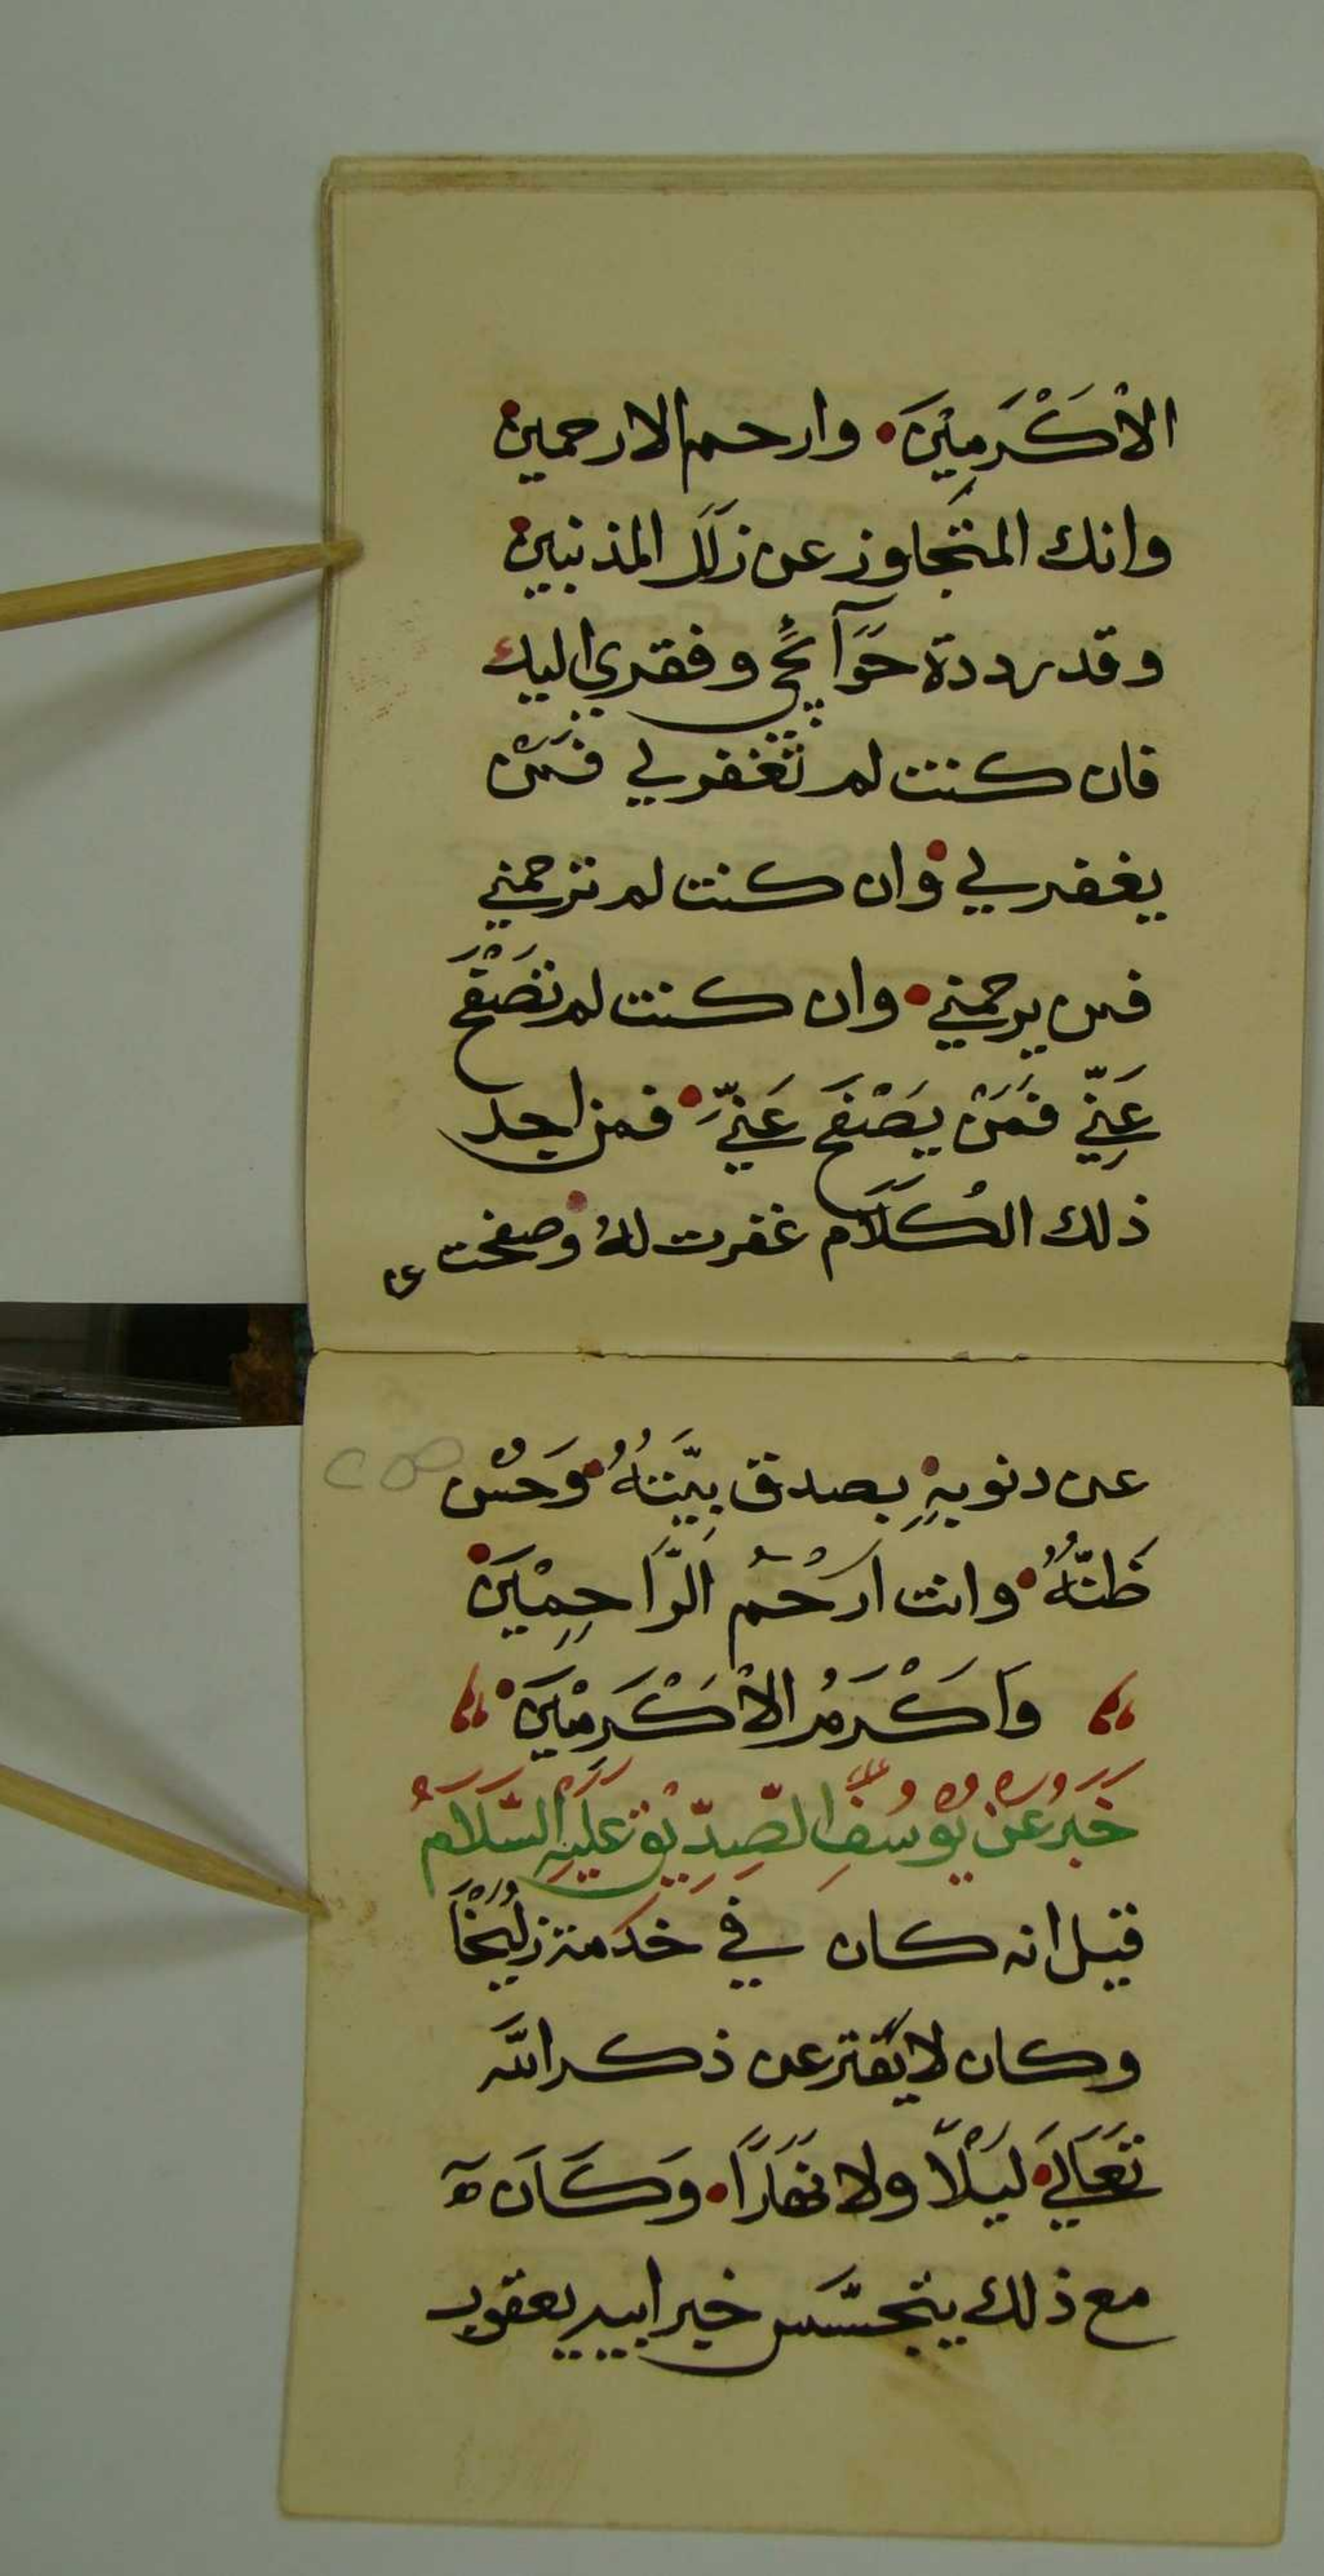 الاْكْرَمِيْنَ • وارحم الارحمين •
وانك المتَجاوز عن زَلَلَ المذنبين •
وقد رددة حَوَآئجُي وفقري اليك
فان كنت لم تَغْفر لي فَمَنْ
يغفر لي • وان كنت لم ترحمني
فمن يرحمني • وان كنت لم تَصْفَح
عَنِّي فَمَنْ يَصْفَح عَنِّيَ • فمن اجل
ذلك الكُلَاَم غفرت لهُ • وصفحت
عن
عن دنوبهِ • بصدق نِيَّتهُ • وَحُسْن
ظَنّهُ • وانت ارْحُم الرَّاحِمِيْنَ •
وَاكْرَمُ الاْكْرَمْيِنَ •
خَبَرُ عَنْ يُوْسُفِ الصِّدِّيْق عَلَيْهِ السَّلَامُ
قيل انه كان في خدَمة زُلَيْخَا
وكان لا يَفْتر عن ذكر اللَّه
تَعَالَي • لَيْلًا ولا نَهَارًا • وَكَاَنَ
مع ذلك يتجسَّس خبر ابيه يعقوب